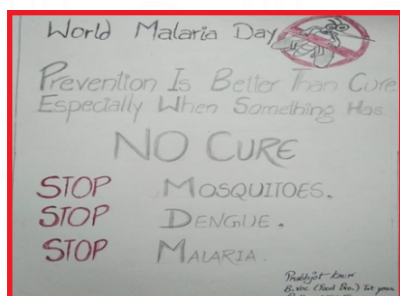 World Malaria Day
Prevention Is Better Than Cure
Especially When Something Has
NO CURE
STOP MOSQUITOES.
STOP DENGUE.
STOP MALARIA.
Prabhjot Kaur
B.Voc (Food Pro.) 1st year